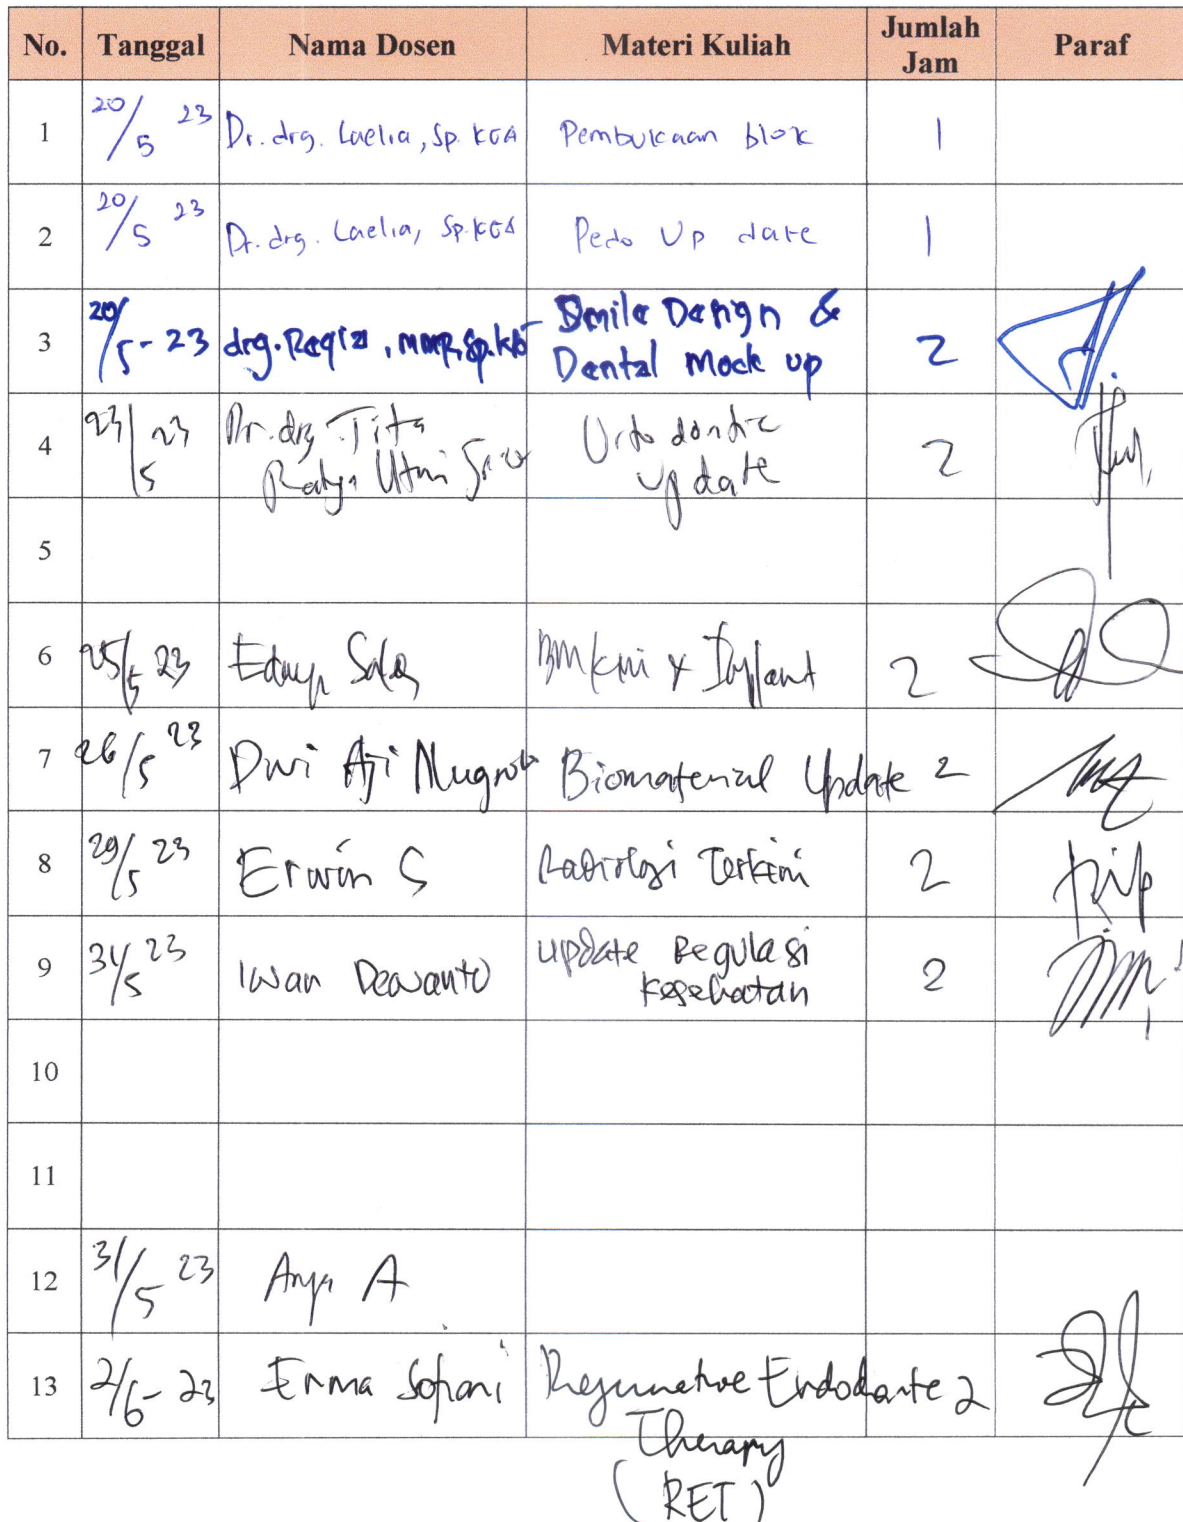 No. Tanggal Nama Dosen Materi Kuliah Jumlah Jam Paraf
1 20/5 23 Dr. drg. Laelia, Sp. KGA Pembukaan blok 1
2 20/5 23 Dr. drg. Laelia, Sp. KGA Pedo Up date 1
3 20/5-23 drg. Regia, MMR, Sp. Smile Design &
Dental Mock up 2
4 23/5 23 Dr. drg. Tita Orto dontic
Ratya Utami update 2
5
6 25/5 23 Implant 2
7 26/5 23 Dwi Aji Nugroho Biomaterial Update 2
8 29/5 23 Erwin S Radiologi Terkini 2
9 31/5 23 Iwan Dewanto update Regulasi
Kesehatan 2
10
11
12 31/5 23 A
13 2/6-23 Erma Sofiani Regenerative Endodonte 2
Therapy
(RET)